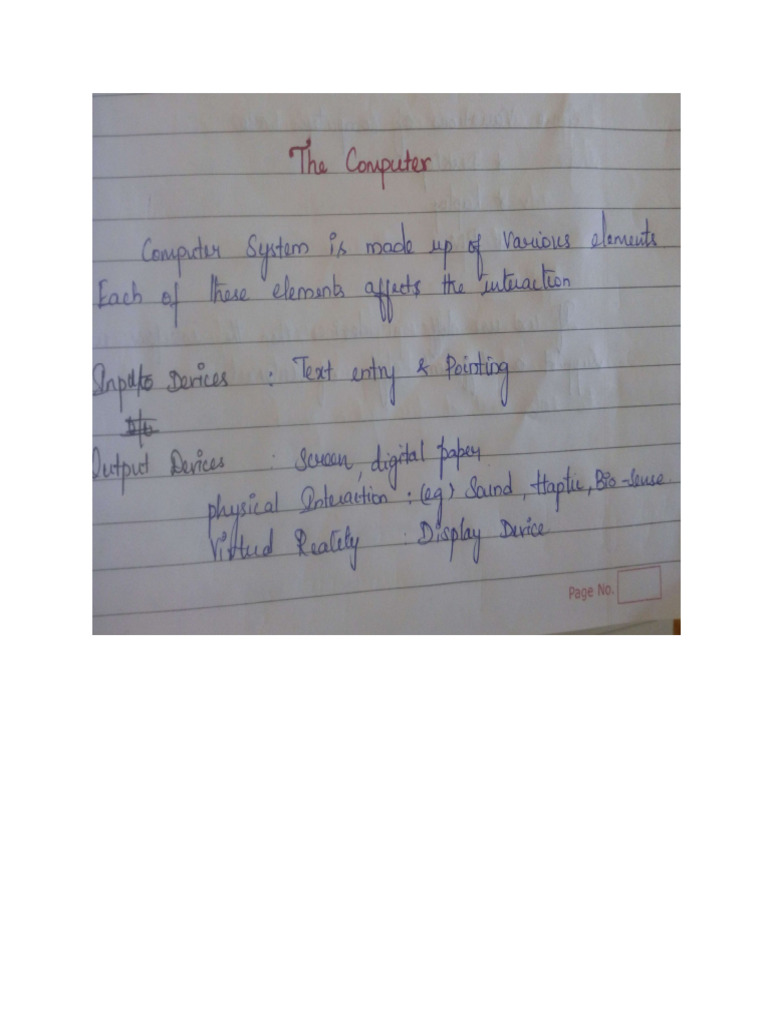 The Computer
Computer System is made up of various elements
Each of these elements affects the interaction
Inputs Devices : Text entry & Pointing
Output Devices : Screen, digital paper
physical Interaction : (eg) Sound, Haptic, Bio-sense
Virtual Reality : Display Device
Page No.